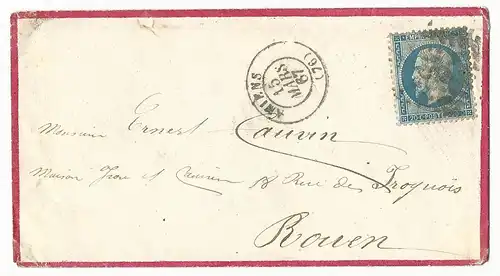 EMPIRE
20 C POSTES 20 C
AMIENS
15
MARS
67
(76)
Monsieur Ernest Cauvin
Maison et 18 Rue des Iroquois
Rouen